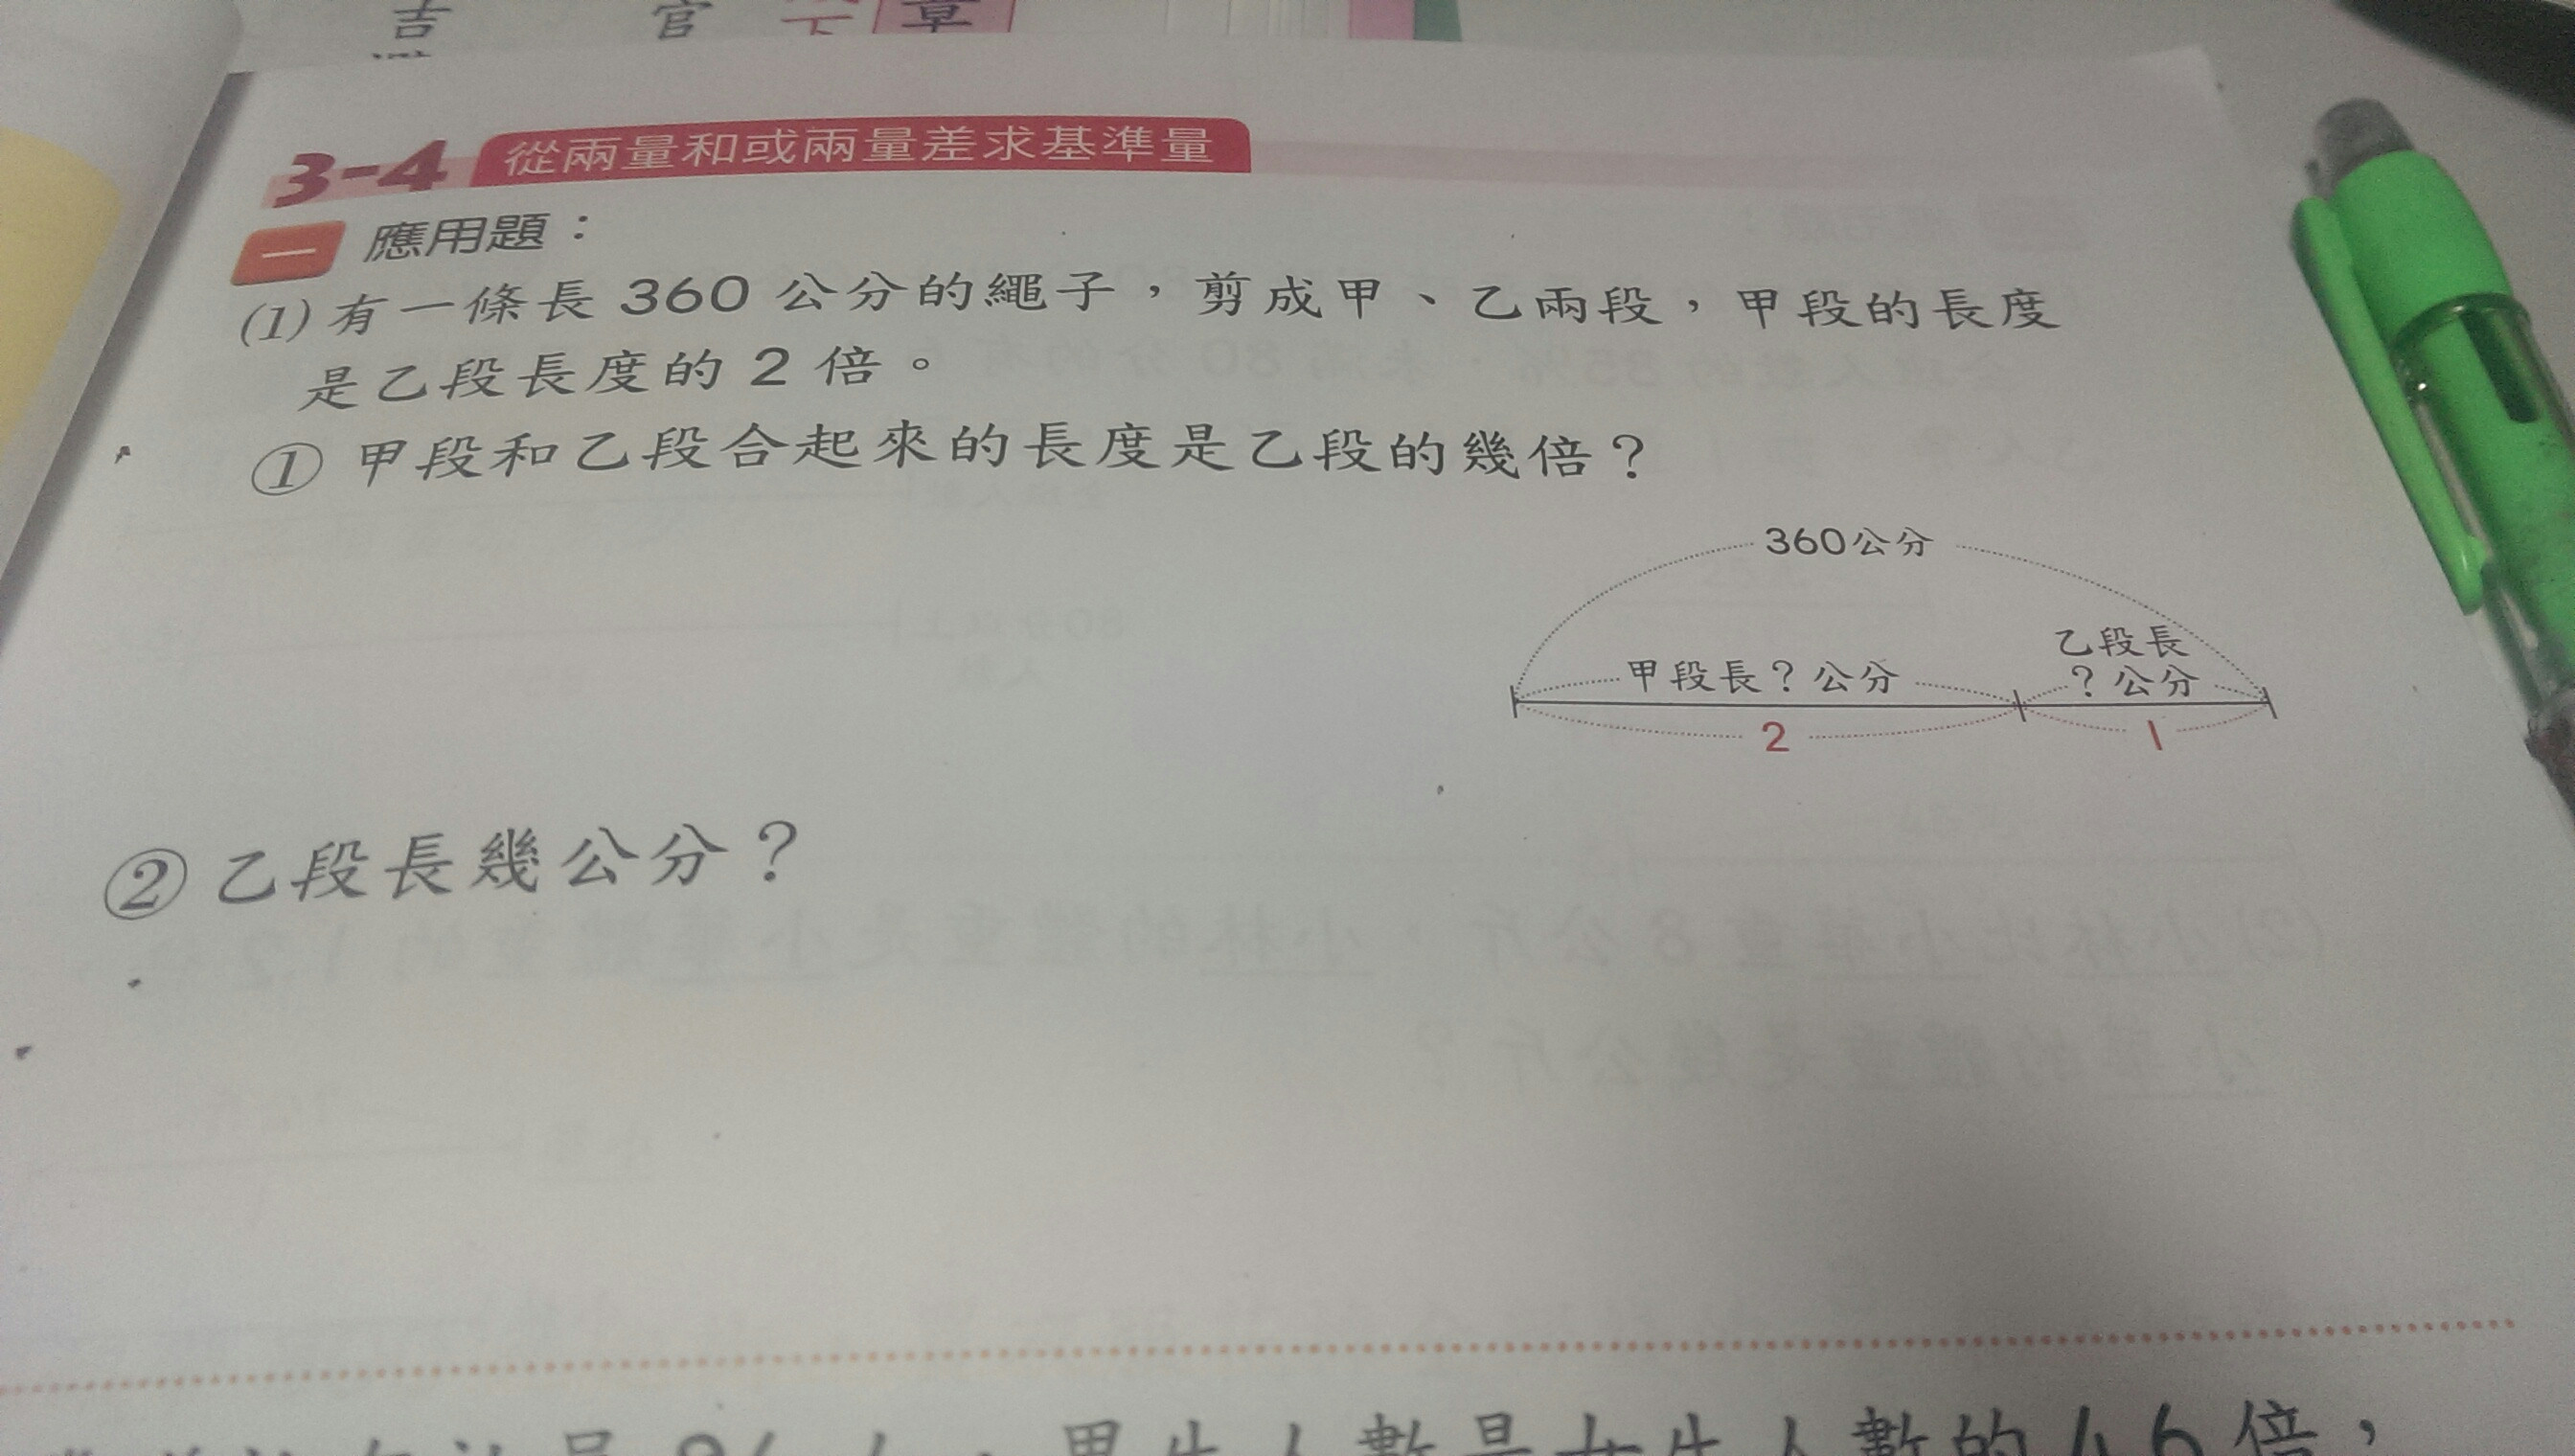 官
章
3-4 從兩量和或兩量差求基準量
一 應用題：
(1) 有一條長 360 公分的繩子，剪成甲、乙兩段，甲段的長度
是乙段長度的 2 倍。
① 甲段和乙段合起來的長度是乙段的幾倍？
360公分
甲段長？公分
乙段長
？公分
2
1
② 乙段長幾公分？
男生人數是女生人數的1.6倍，